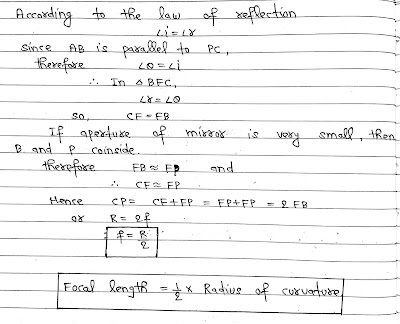 According to the law of reflection
∠i = ∠r
since AB is parallel to PC,
therefore ∠θ = ∠i
∴ In △BFC,
∠r = ∠θ
so, CF = FB
If aperture of mirror is very small, then
B and P coinside.
therefore FB ≈ FP and
∴ CF ≈ FP
Hence CP = CF + FP = FP + FP = 2 FB
or R = 2f
f = R/2
Focal length = 1/2 × Radius of curvature